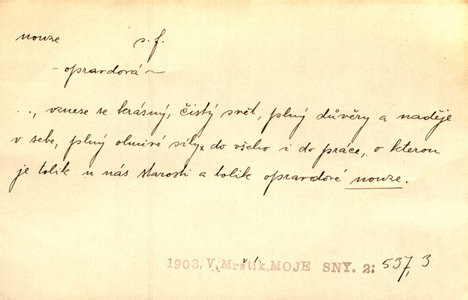 nouze s. f.
- opravdová ~
..., vznese se krásný, čistý svět, plný důvěry a naděje
v sebe, plný ohnivé síly do všeho i do práce, o kterou
je tolik u nás starosti a tolik opravdové nouze.
1903. V. Mrštík, MOJE SNY. 2: 537, 3